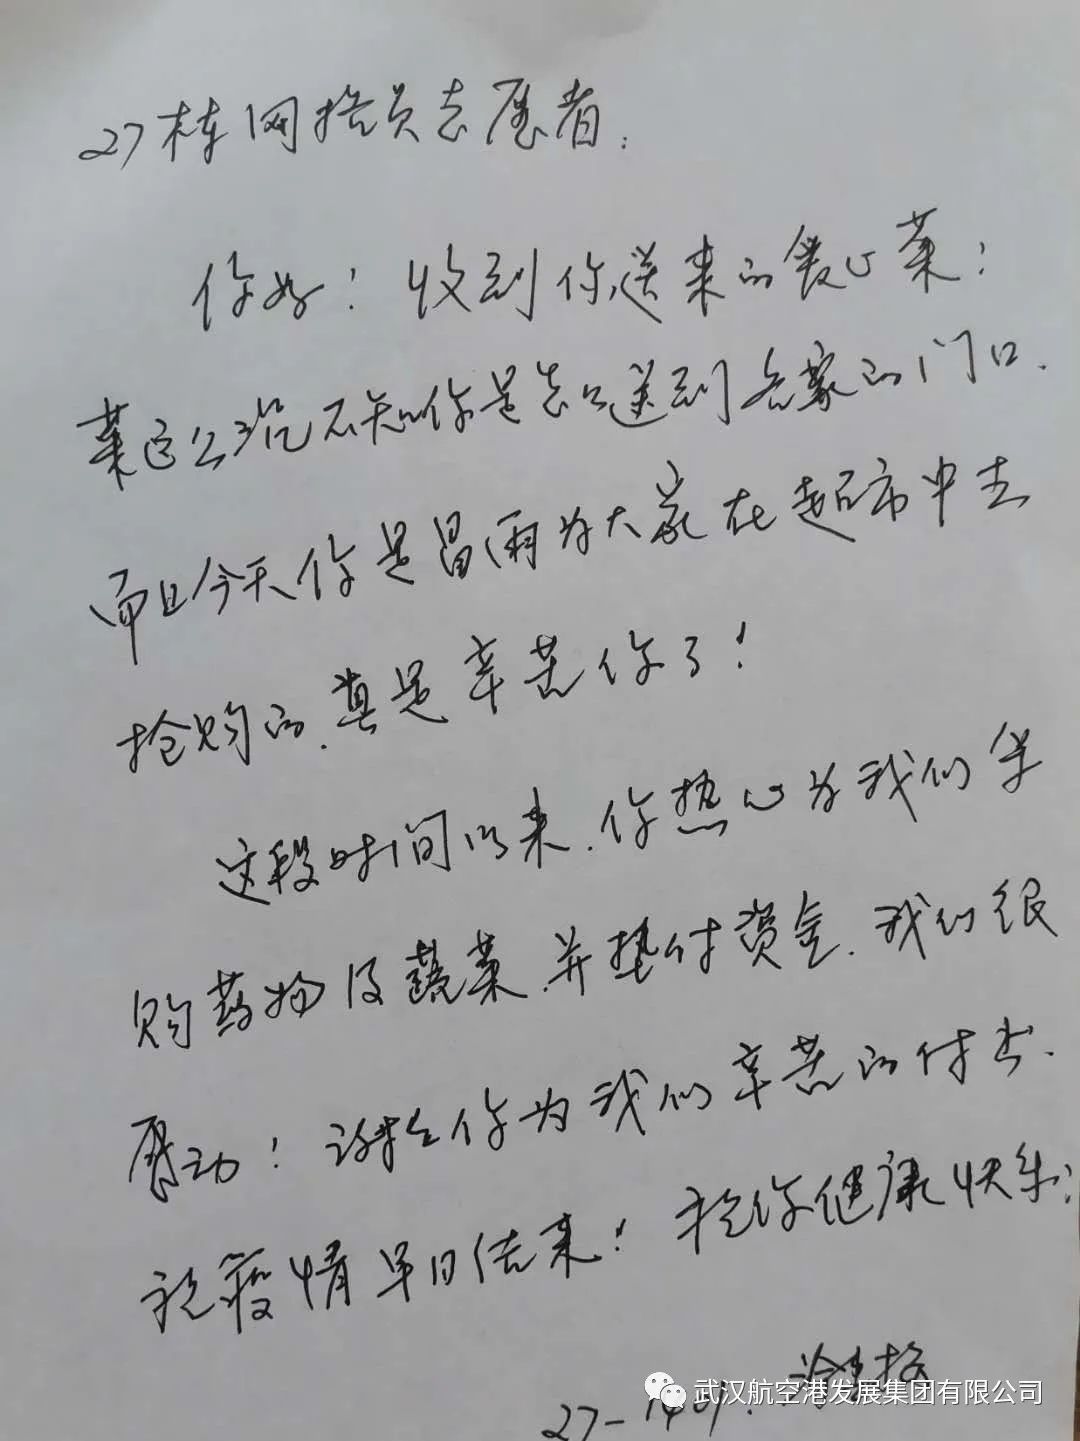 27栋网格员志愿者:
你好!收到你送来的爱心菜!
菜这么沉不知你是怎么送到各家的门口.
而且今天你是冒雨为大家在超市中去
抢购的.真是辛苦你了!
这段时间以来.你热心为我们华
购药物及蔬菜.并垫付资金.我们很
感动!谢谢你为我们辛苦的付出.
祝疫情早日结束!祝你健康快乐!
27-1401.
武汉航空港发展集团有限公司